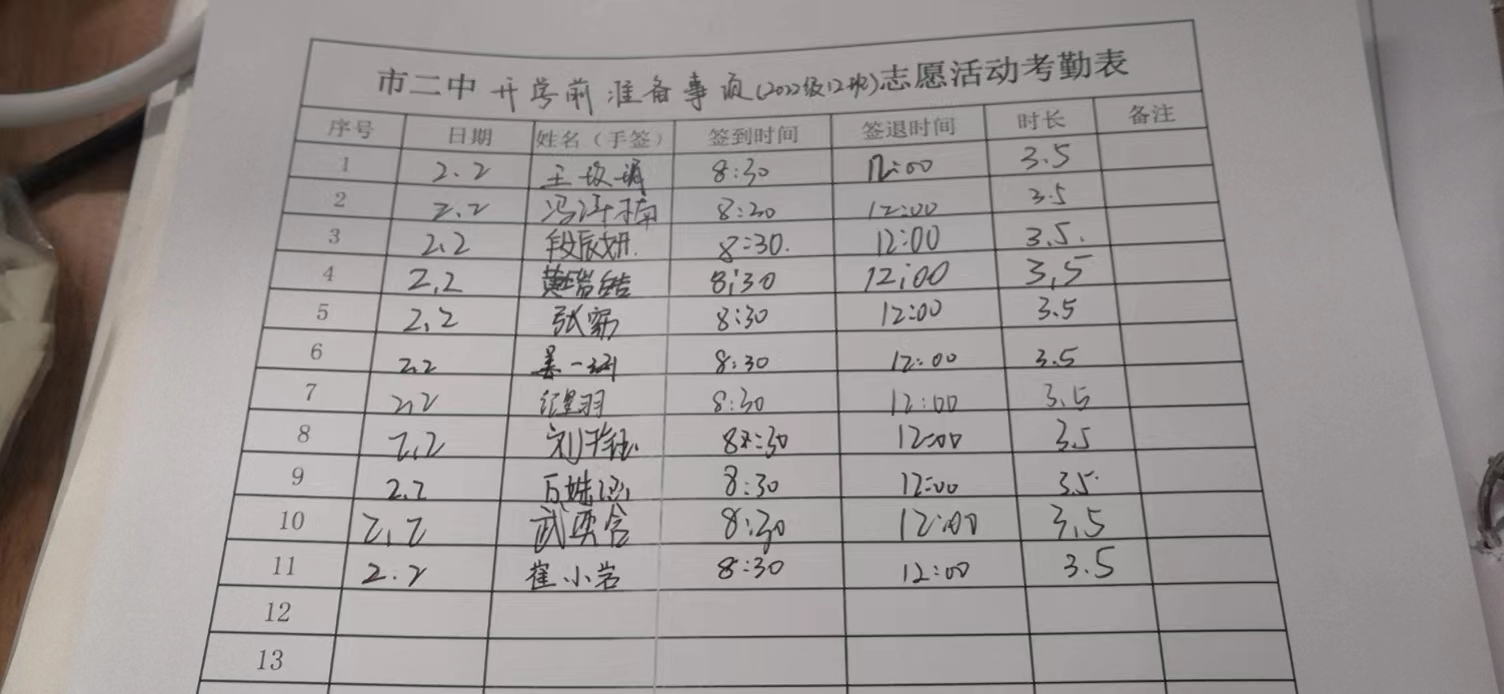 市二中 开学前准备事项(2022级12班)志愿活动考勤表
序号 日期 姓名（手签） 签到时间 签退时间 时长 备注
1 2.2 王 8:30 12:00 3.5
2 2.2 冯 8:30 12:00 3.5
3 2.2 段辰妍. 8:30. 12:00 3.5.
4 2.2 黄 8:30 12:00 3.5
5 2.2 张 8:30 12:00 3.5
6 2.2 姜一 8:30 12:00 3.5
7 2.2 纪星羽 8:30 12:00 3.5
8 2.2 刘 8:30 12:00 3.5
9 2.2 8:30 12:00 3.5
10 2.2 武奕含 8:30 12:00 3.5
11 2.2 崔小岩 8:30 12:00 3.5
12
13